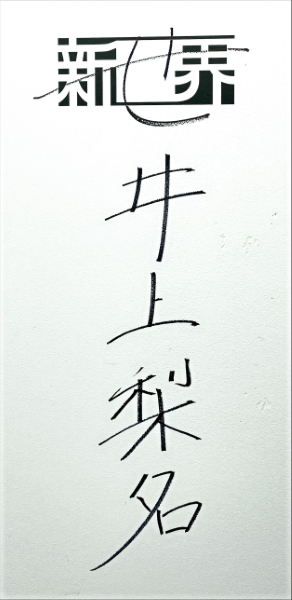 新世界
井上梨名